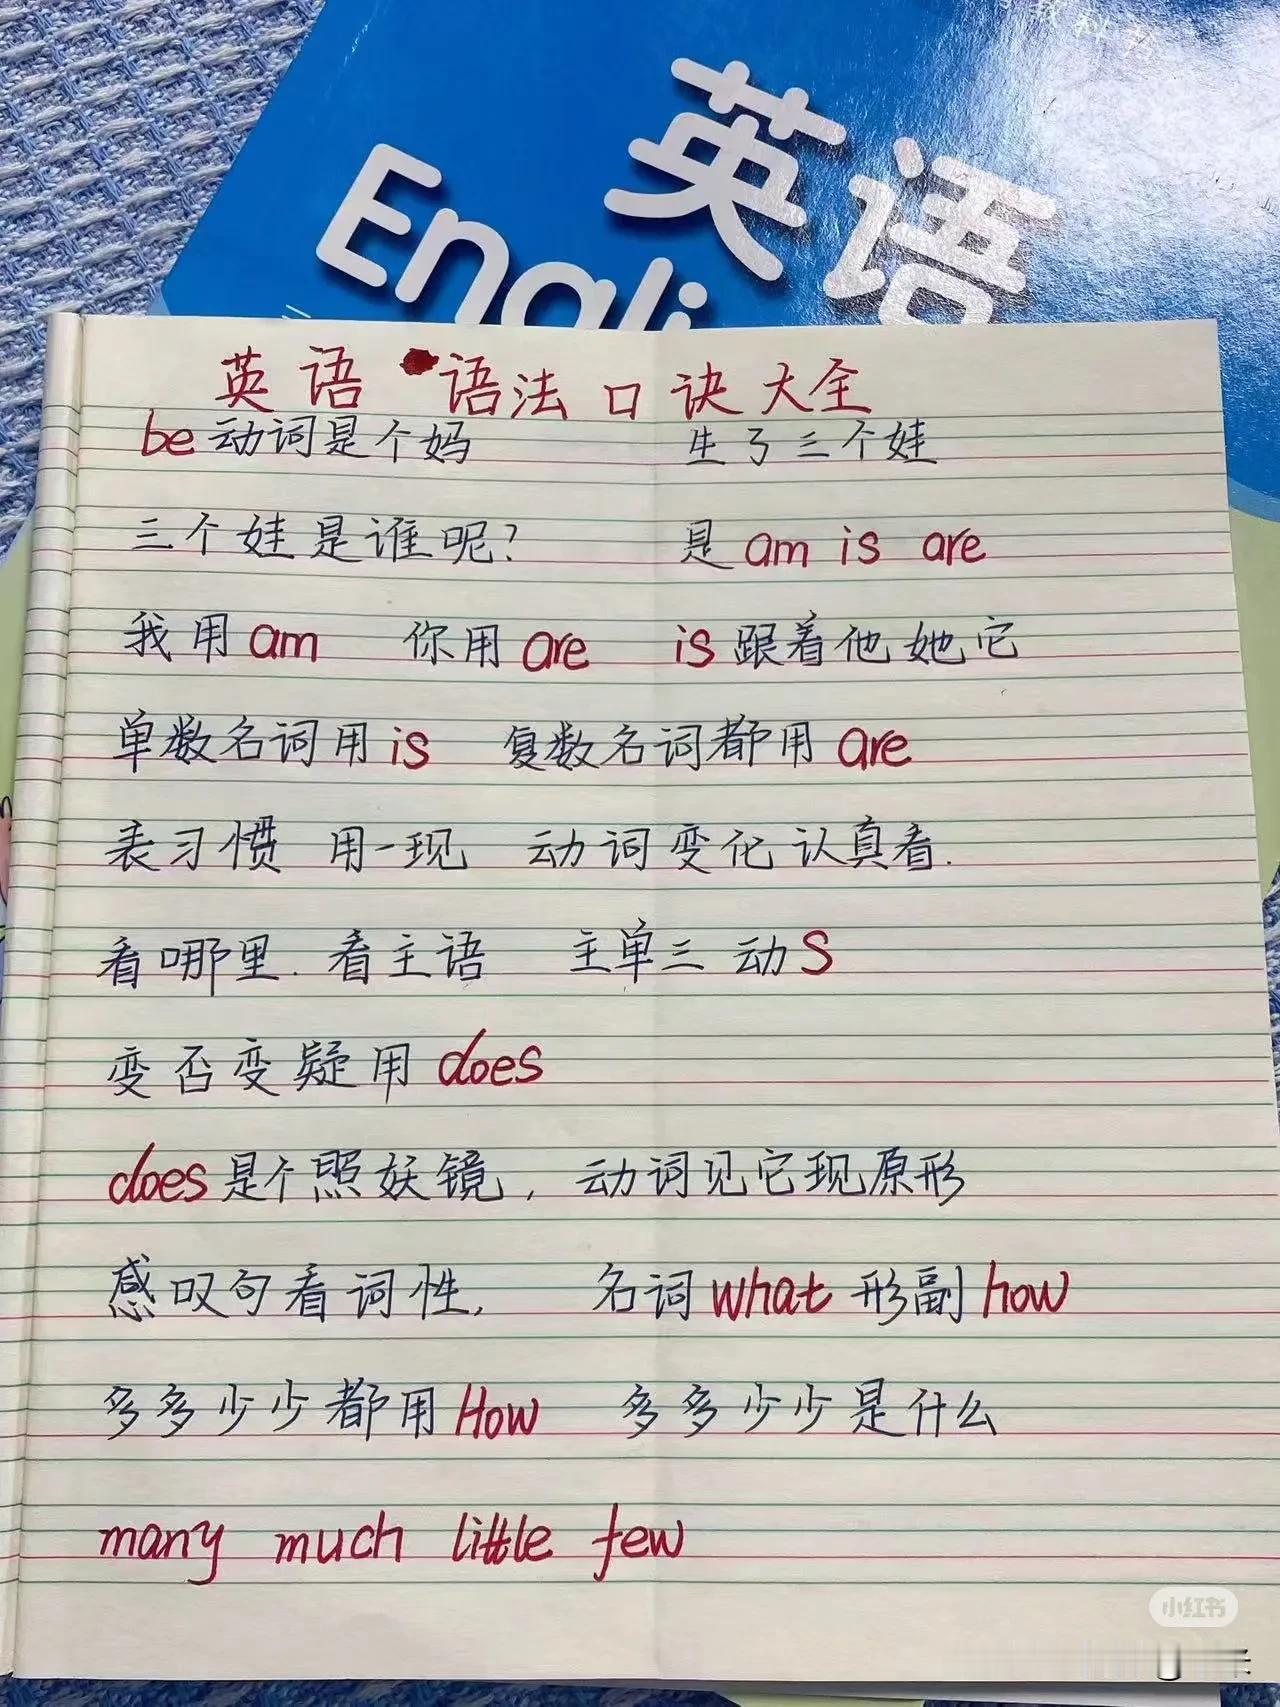 英语
Engli
英语语法口诀大全
be动词是个妈 生了三个娃
三个娃是谁呢? 是 am is are
我用 am 你用 are is 跟着他她它
单数名词用 is 复数名词都用 are
表习惯 用一现 动词变化认真看.
看哪里.看主语 主单三 动S
变否变疑用 does
does 是个照妖镜, 动词见它现原形
感叹句看词性, 名词 what 形副 how
多多少少都用 How 多多少少是什么
many much little few
小红书